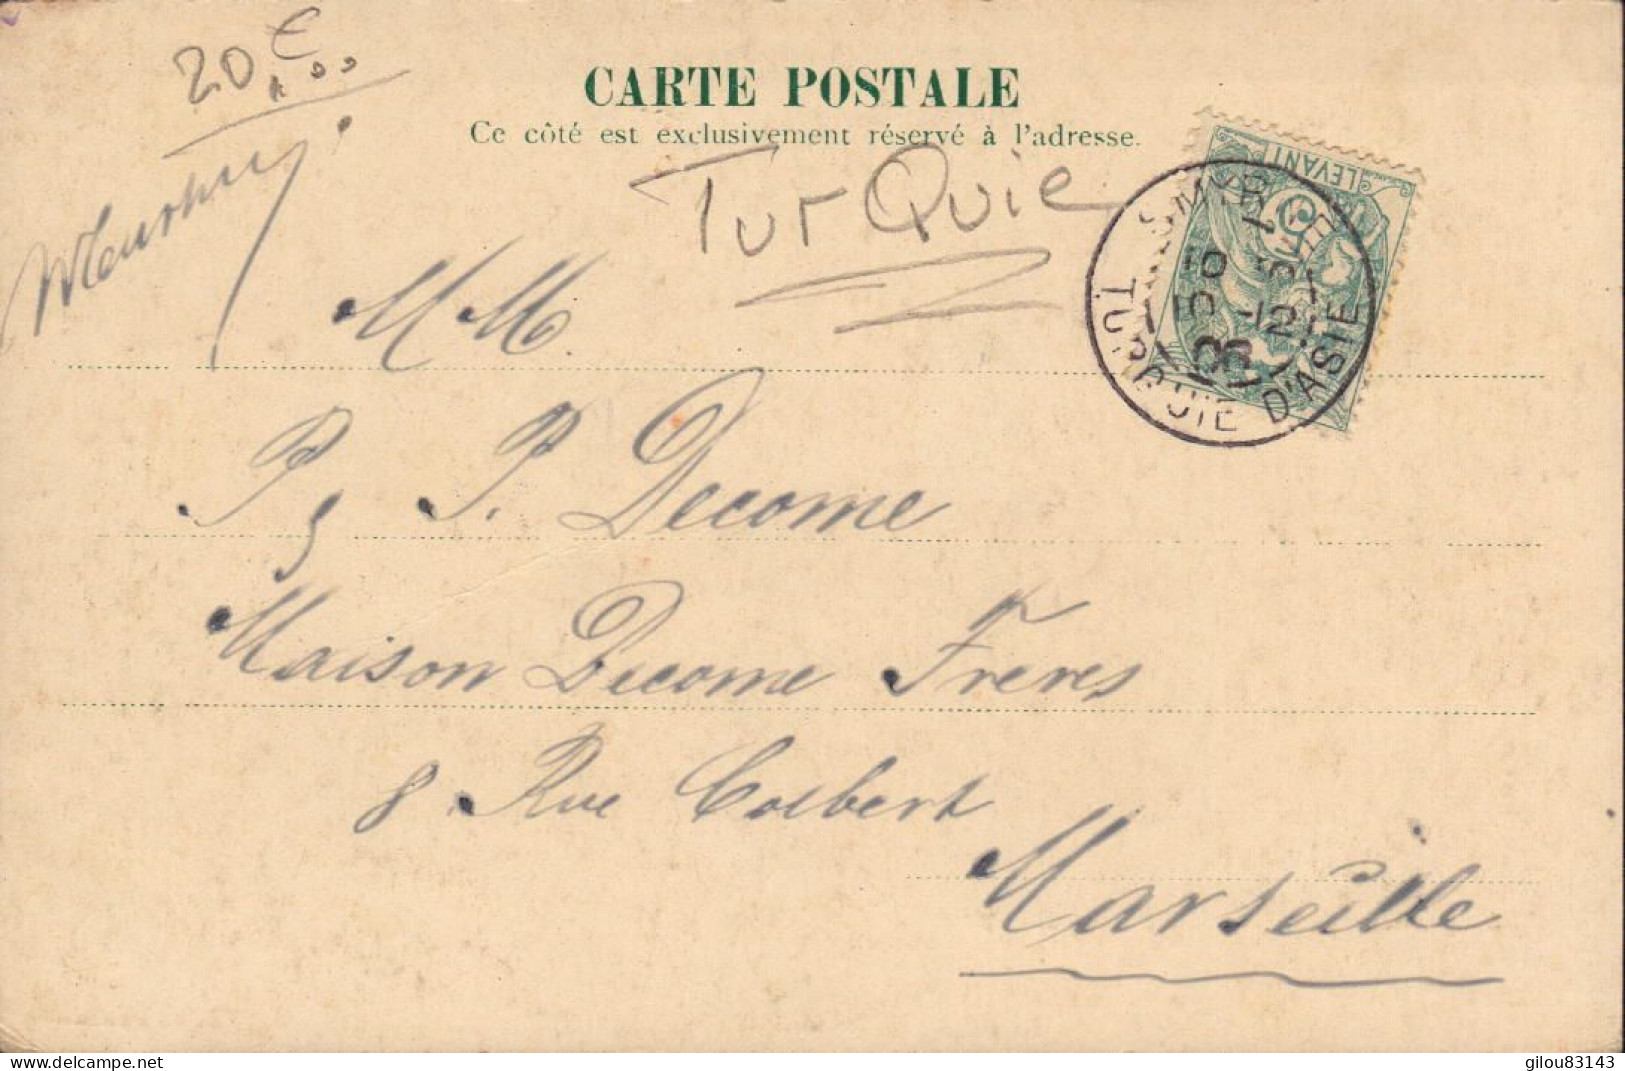 20,00 €
CARTE POSTALE
Ce côté est exclusivement réservé à l'adresse.
TurQuie
LEVANT
5
SMYRNE
TURQUIE D'ASIE
MM.
P & P. Decome
Maison Decome Freres
8 Rue Colbert
Marseille
delcampe.net
gilou83143